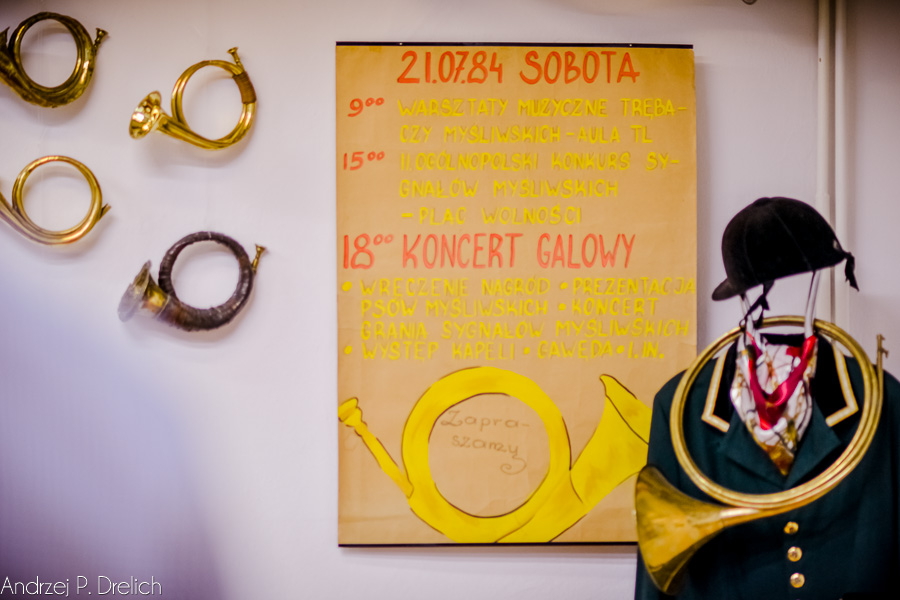 21.07.84 SOBOTA
9⁰⁰ WARSZTATY MUZYCZNE TRĘBA-
CZY MYŚLIWSKICH - AULA TL
15⁰⁰ II.OGÓLNOPOLSKI KONKURS SY-
GNAŁÓW MYŚLIWSKICH
- PLAC WOLNOŚCI
18⁰⁰ KONCERT GALOWY
• WRĘCZENIE NAGRÓD • PREZENTACJA
PSÓW MYŚLIWSKICH • KONCERT
GRANIA SYGNAŁÓW MYŚLIWSKICH
• WYSTĘP KAPELI • GAWĘDA • I.IN.
Zapra-
szamy
Andrzej P. Drelich